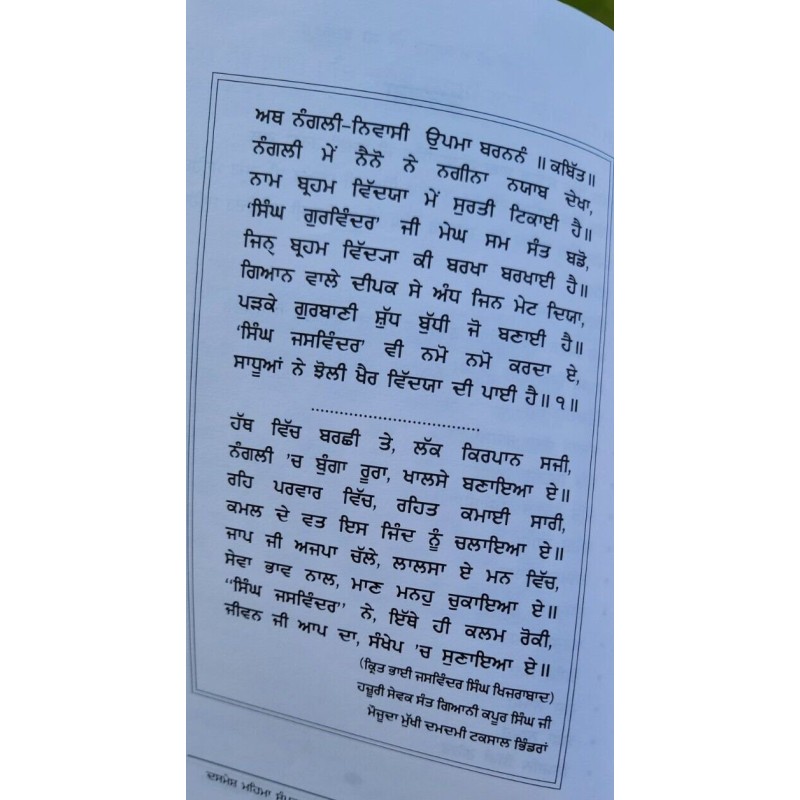 ਅਥ ਨੰਗਲੀ-ਨਿਵਾਸੀ ਉਪਮਾ ਬਰਨਨੰ ॥ ਕਬਿੱਤ॥
ਨੰਗਲੀ ਮੇਂ ਨੈਨੋ ਨੇ ਨਗੀਨਾ ਨਯਾਬ ਦੇਖਾ,
ਨਾਮ ਬ੍ਰਹਮ ਵਿੱਦਯਾ ਮੇਂ ਸੁਰਤੀ ਟਿਕਾਈ ਹੈ॥
'ਸਿੰਘ ਗੁਰਵਿੰਦਰ' ਜੀ ਮੇਘ ਸਮ ਸੰਤ ਬਡੋ,
ਜਿਨ੍ ਬ੍ਰਹਮ ਵਿੱਦ੍ਯਾ ਕੀ ਬਰਖਾ ਬਰਖਾਈ ਹੈ॥
ਗਿਆਨ ਵਾਲੇ ਦੀਪਕ ਸੇ ਅੰਧ ਜਿਨ ਮੇਟ ਦਿਯਾ,
ਪੜਕੇ ਗੁਰਬਾਣੀ ਸ਼ੁੱਧ ਬੁੱਧੀ ਜੋ ਬਣਾਈ ਹੈ॥
'ਸਿੰਘ ਜਸਵਿੰਦਰ' ਵੀ ਨਮੋ ਨਮੋ ਕਰਦਾ ਏ,
ਸਾਧੂਆਂ ਨੇ ਝੋਲੀ ਖੈਰ ਵਿੱਦਯਾ ਦੀ ਪਾਈ ਹੈ॥ ੧॥
..................................
ਹੱਥ ਵਿੱਚ ਬਰਛੀ ਤੇ, ਲੱਕ ਕਿਰਪਾਨ ਸਜੀ,
ਨੰਗਲੀ 'ਚ ਬੁੰਗਾ ਰੂਰਾ, ਖਾਲਸੇ ਬਣਾਇਆ ਏ॥
ਰਹਿ ਪਰਵਾਰ ਵਿੱਚ, ਰਹਿਤ ਕਮਾਈ ਸਾਰੀ,
ਕਮਲ ਦੇ ਵਤ ਇਸ ਜਿੰਦ ਨੂੰ ਚਲਾਇਆ ਏ॥
ਜਾਪ ਜੀ ਅਜਪਾ ਚੱਲੇ, ਲਾਲਸਾ ਏ ਮਨ ਵਿੱਚ,
ਸੇਵਾ ਭਾਵ ਨਾਲ, ਮਾਣ ਮਨਹੁ ਚੁਕਾਇਆ ਏ॥
"ਸਿੰਘ ਜਸਵਿੰਦਰ" ਨੇ, ਇੱਥੇ ਹੀ ਕਲਮ ਰੋਕੀ,
ਜੀਵਨ ਜੀ ਆਪ ਦਾ, ਸੰਖੇਪ 'ਚ ਸੁਣਾਇਆ ਏ॥
(ਕ੍ਰਿਤ ਭਾਈ ਜਸਵਿੰਦਰ ਸਿੰਘ ਖਿਜਰਾਬਾਦ)
ਹਜ਼ੂਰੀ ਸੇਵਕ ਸੰਤ ਗਿਆਨੀ ਕਪੂਰ ਸਿੰਘ ਜੀ
ਮੋਜੂਦਾ ਮੁੱਖੀ ਦਮਦਮੀ ਟਕਸਾਲ ਭਿੰਡਰਾਂ
ਦਸਮੇਸ਼ ਮਹਿਮਾ